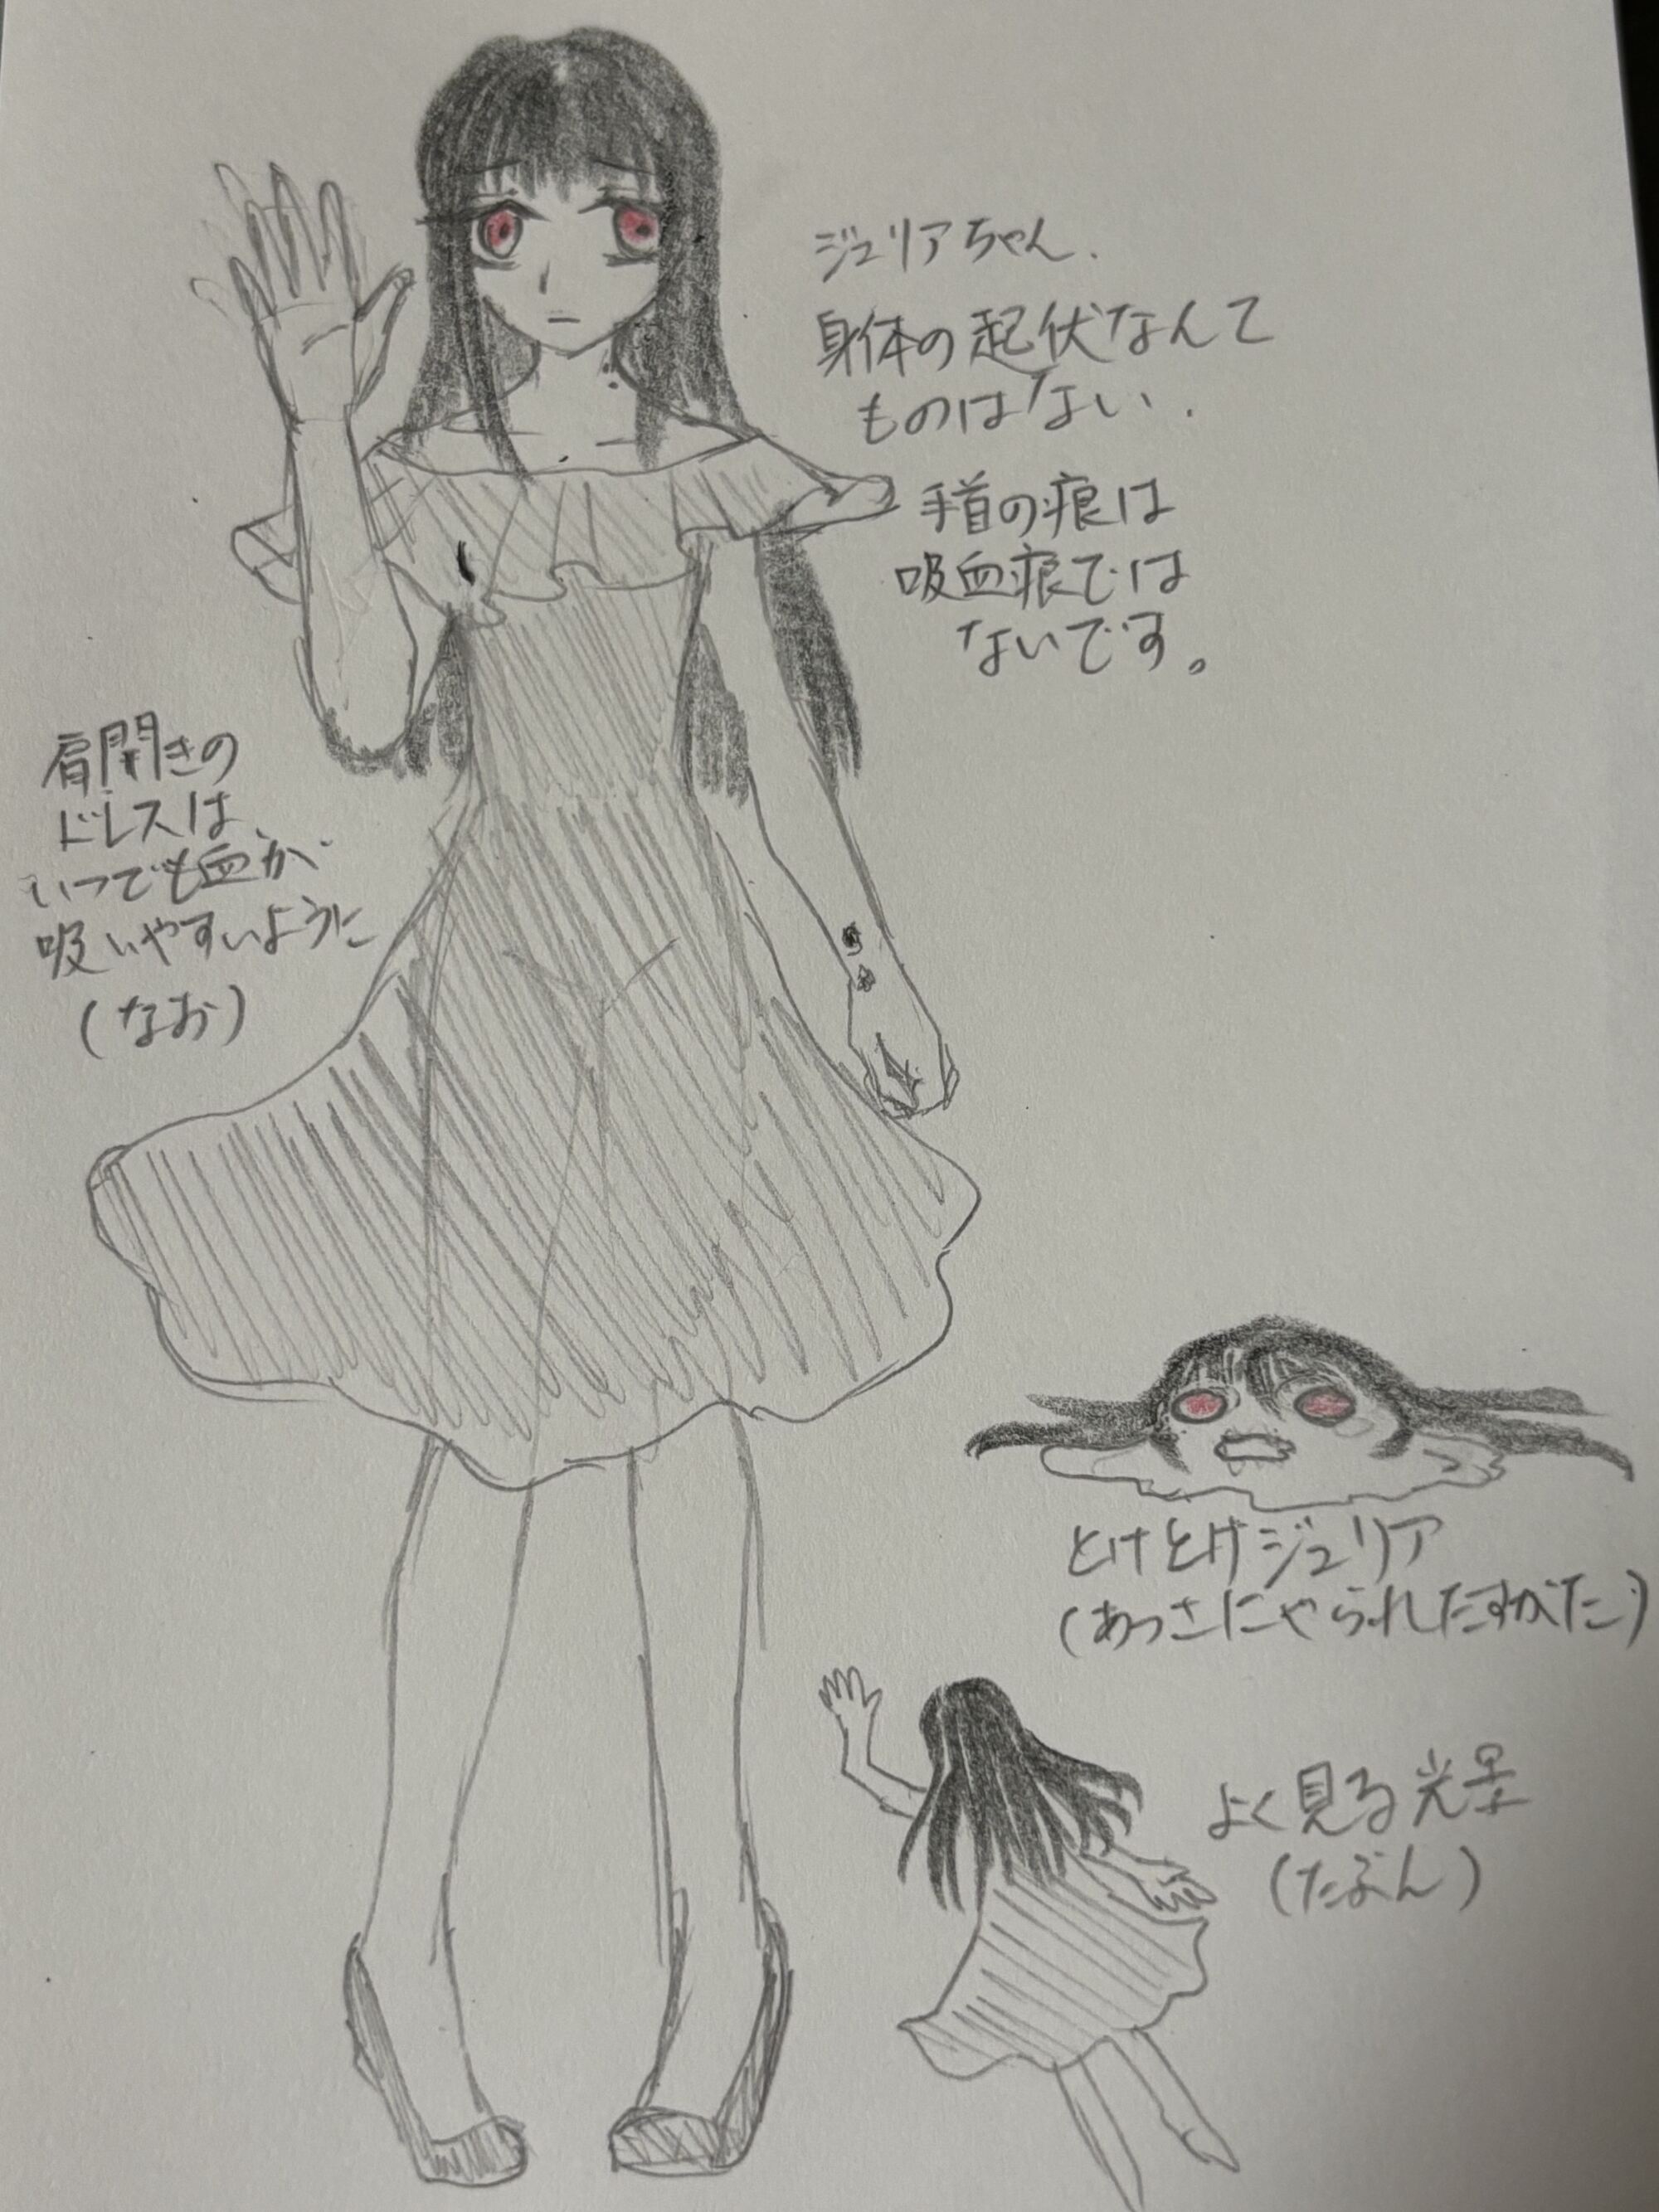 ジュリアちゃん.
身体の起伏なんて
ものはない.
手首の痕は
吸血痕では
ないです。
肩開きの
ドレスは、
いつでも血が
吸いやすいように
(なお)
とけとけジュリア
(あつさにやられたすがた)
よく見る光景
(たぶん)